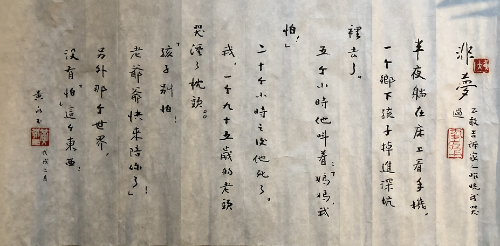 非夢
不敢告訴家人 我哭
過
半夜躺在床上看手機。
一个鄉下孩子掉進深坑
裡去了。
五个小時他叫着:「媽媽,我
怕!」
二十个小時之後他死了。
我,一个九十五歲的老頭
哭濕了枕頭。
「孩子別怕!
老爺爺快來陪你了!」
另外那个世界,
沒有「怕」這个東西!
黃永玉
戊戌